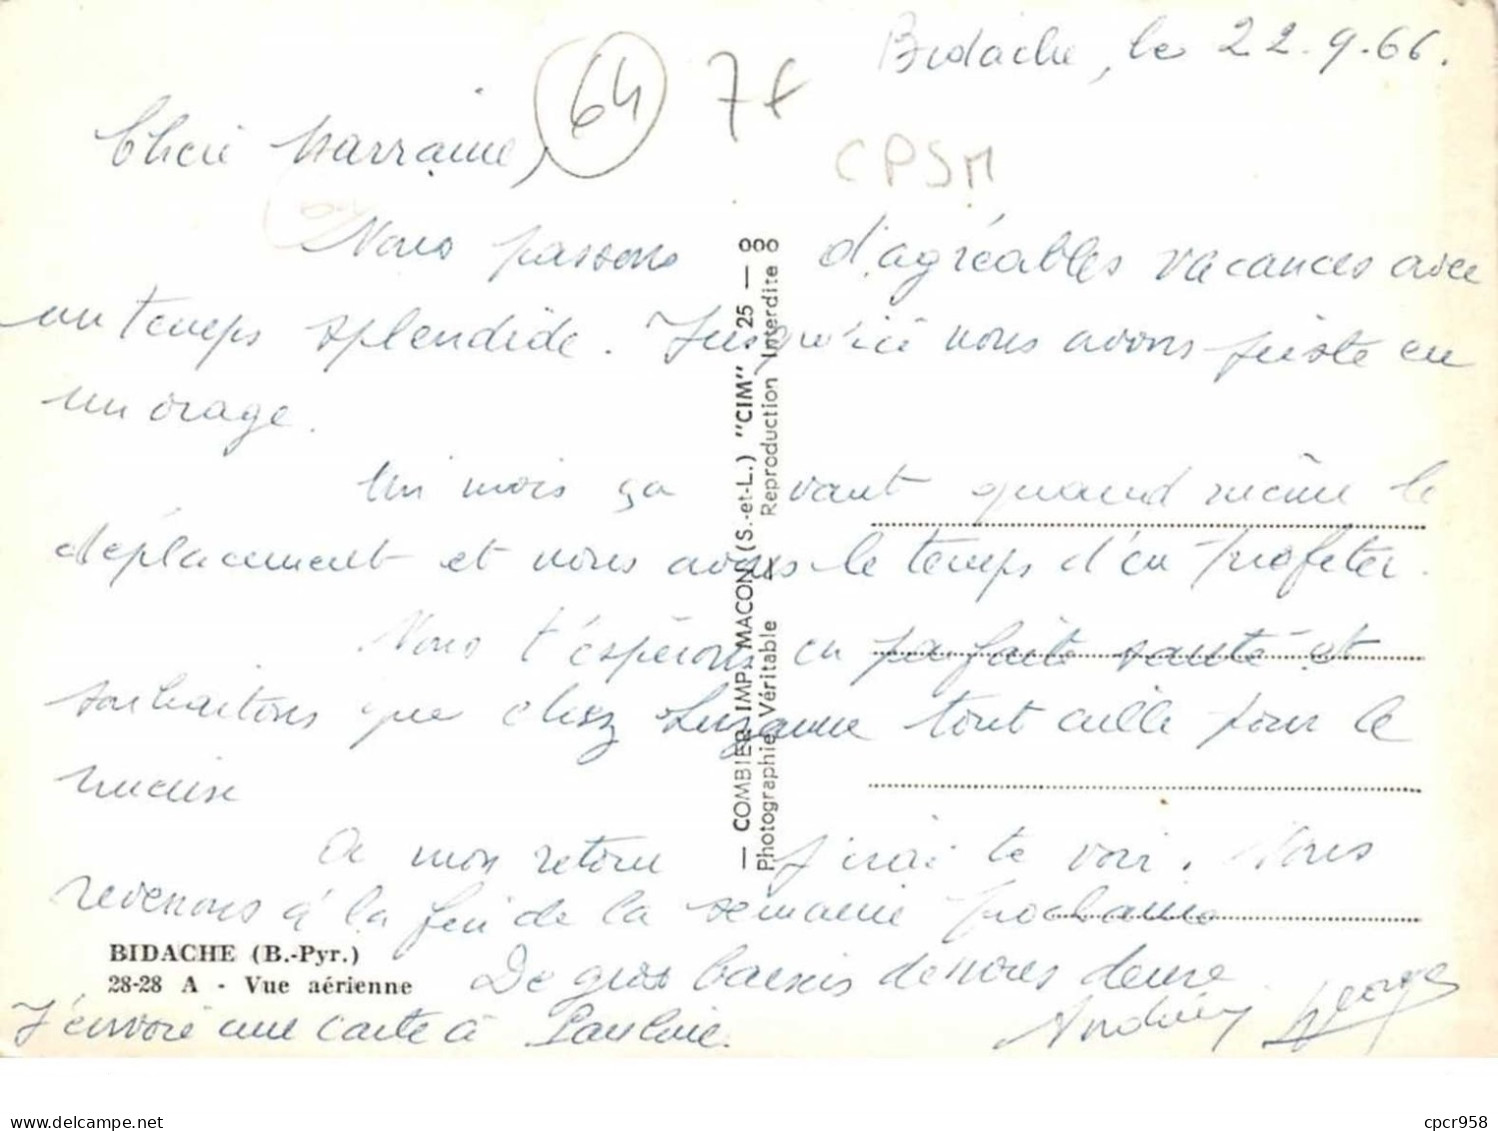 Bidache, le 22.9.66.
64 7€
CPSM
Chère Marraine,
Nous passons d'agréables vacances avec
un temps splendide. Jusqu'ici nous avons juste eu
un orage.
Un mois ça vaut quand même le
déplacement et nous avons le temps d'en profiter.
Nous t'espérons en parfaite santé et
souhaitons que chez Suzanne tout aille pour le
mieux
A mon retour j'irai te voir. Nous
revenons à la fin de la semaine prochaine
De gros baisers de nous deux.
J'envoie une carte à Pauline.
Andrée Georges
BIDACHE (B.-Pyr.)
28-28 A - Vue aérienne
— COMBIER IMP. MACON (S.-et-L.) "CIM" - 25 — ooo
Photographie Véritable Reproduction Interdite
cpcr958